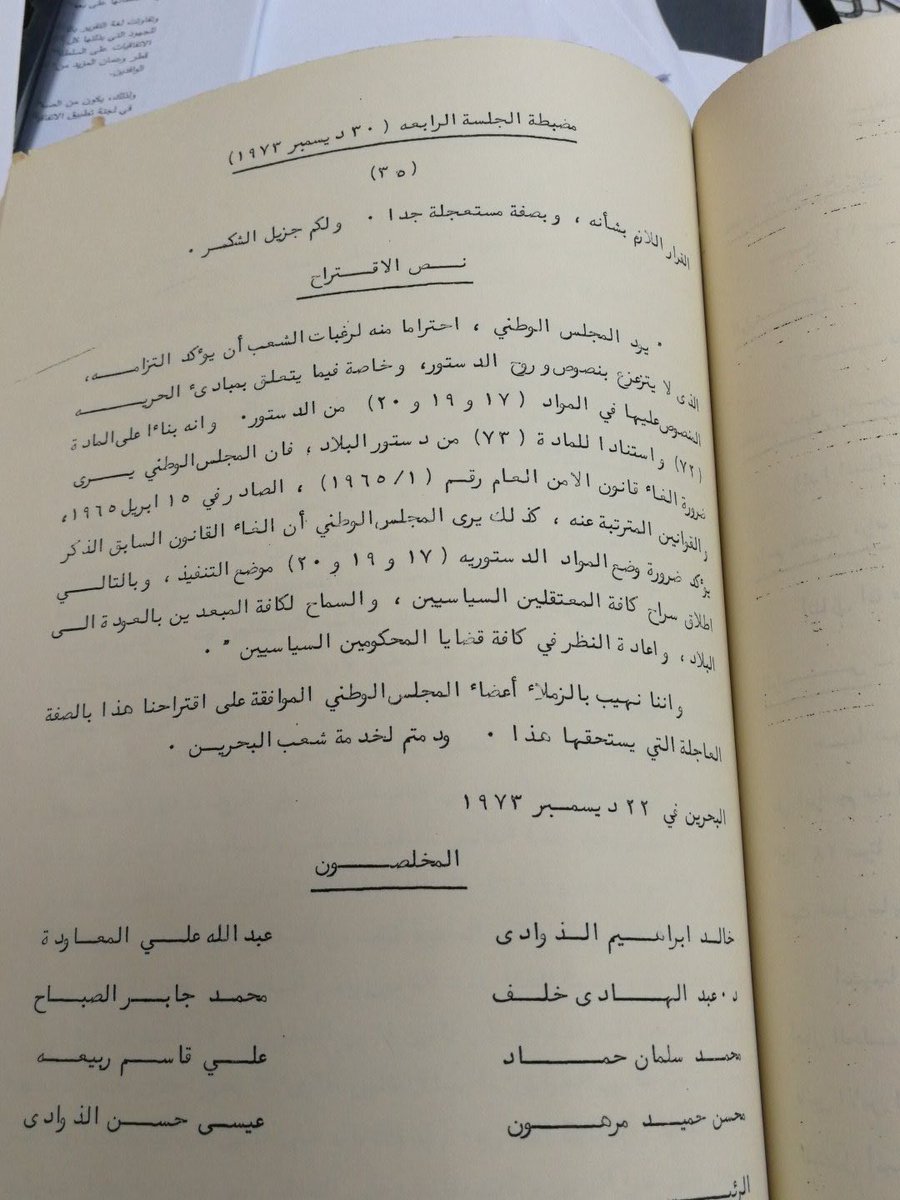 وتفاوتت لغة التقرير
للجهود التي بذلتها
الاتفاقيات على
قطر وضمان المزيد من
الوافدين.
ولذلك، يكون من
في لجنة تطبيق
مضبطة الجلسة الرابعه ( ٣٠ ديسمبر ١٩٧٣)
(٣٥)
القرار اللازم بشأنه ، وبصفة مستعجلة جدا . ولكم جزيل الشكر .
نص الاقتراح
" يرد المجلس الوطني ، احتراما منه لرغبات الشعب أن يؤكد التزامه ،
الذى لا يتزعزع بنصوص وروح الدستور، وخاصة فيما يتعلق بمبادئ الحريه
المنصوص عليها في المواد ( ١٧ و ١٩ و ٢٠) من الدستور. وانه بناءا على المادة
(٧٢) واستنادا للمادة (٧٣) من دستور البلاد ، فان المجلس الوطني يرى
ضرورة الغاء قانون الامن العام رقم (١/ ١٩٦٥) ، الصادر في ١٥ ابريل ١٩٦٥،
والقوانين المترتبة عنه ، كذلك يرى المجلس الوطني أن الغاء القانون السابق الذكر
يؤكد ضرورة وضع المواد الدستوريه (١٧ و ١٩ و ٢٠) موضع التنفيذ ، وبالتالي
اطلاق سراح كافة المعتقلين السياسيين ، والسماح لكافة المبعدين بالعودة الى
البلاد ، واعادة النظر في كافة قضايا المحكومين السياسيين " .
واننا نهيب بالزملاء أعضاء المجلس الوطني الموافقة على اقتراحنا هذا بالصفة
العاجلة التي يستحقها هذا . ودمتم لخدمة شعب البحرين .
البحرين في ٢٢ ديسمبر ١٩٧٣
المخلصون
خالد ابراهيم الذوادى عبدالله علي المعاودة
د. عبد الهادى خلف محمد جابر الصباح
محمد سلمان حماد علي قاسم ربيعه
محسن حميد مرهون عيسى حسن الذوادى